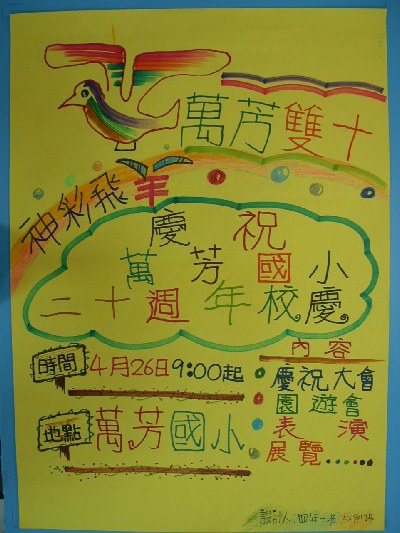 萬芳雙十
神彩飛羊
慶祝
萬芳國小
二十週年校慶
時間 4月26日9:00起
地點 萬芳國小
內容
慶祝大會
園遊會
表演
展覽......
設計人:四年一班